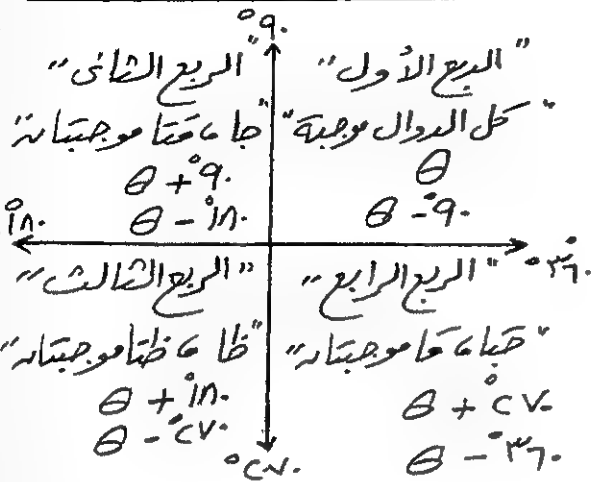 ٩٠°
"الربع الأول"
"كل الدوال موجبة"
θ
٩٠° - θ
"الربع الثاني"
"جا ، قتا موجبتان"
٩٠° + θ
١٨٠° - θ
١٨٠°
٣٦٠°
"الربع الثالث"
"ظا ، ظتا موجبتان"
١٨٠° + θ
٢٧٠° - θ
"الربع الرابع"
"جتا ، قا موجبتان"
٢٧٠° + θ
٣٦٠° - θ
٢٧٠°